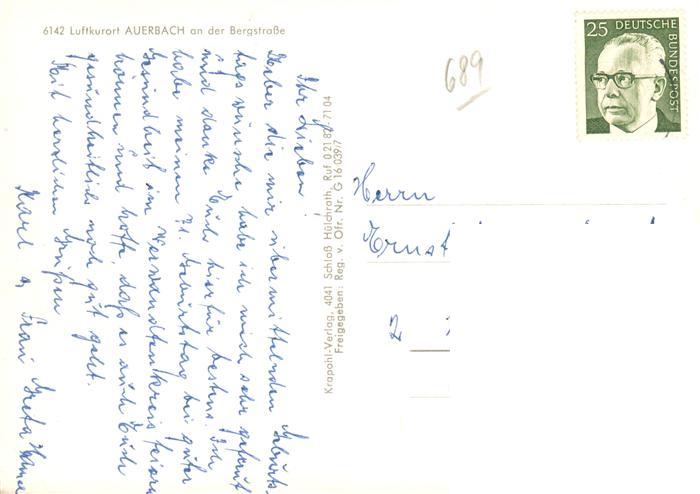 6142 Luftkurort AUERBACH an der Bergstraße
Ihr Lieben!
Darüber die mir übermittelnden Geburts-
tagswünsche habe ich mich sehr gefreut
und danke Euch hierfür bestens. Ich
habe meinen 71. Geburtstag bei guter
Gesundheit im Verwandtenkreis feiern
können und hoffe, daß es auch Euch
gesundheitlich noch gut geht.
Mit herzlichen Grüßen
Karl u. Frau Greta
Krapohl-Verlag, 4041 Schloß Hülchrath, Ruf 0 21 82 / 71 04
Freigegeben: Reg. v. Ofr. Nr. G 16 039/7
689
25 DEUTSCHE
BUNDESPOST
Herrn
Ernst
2